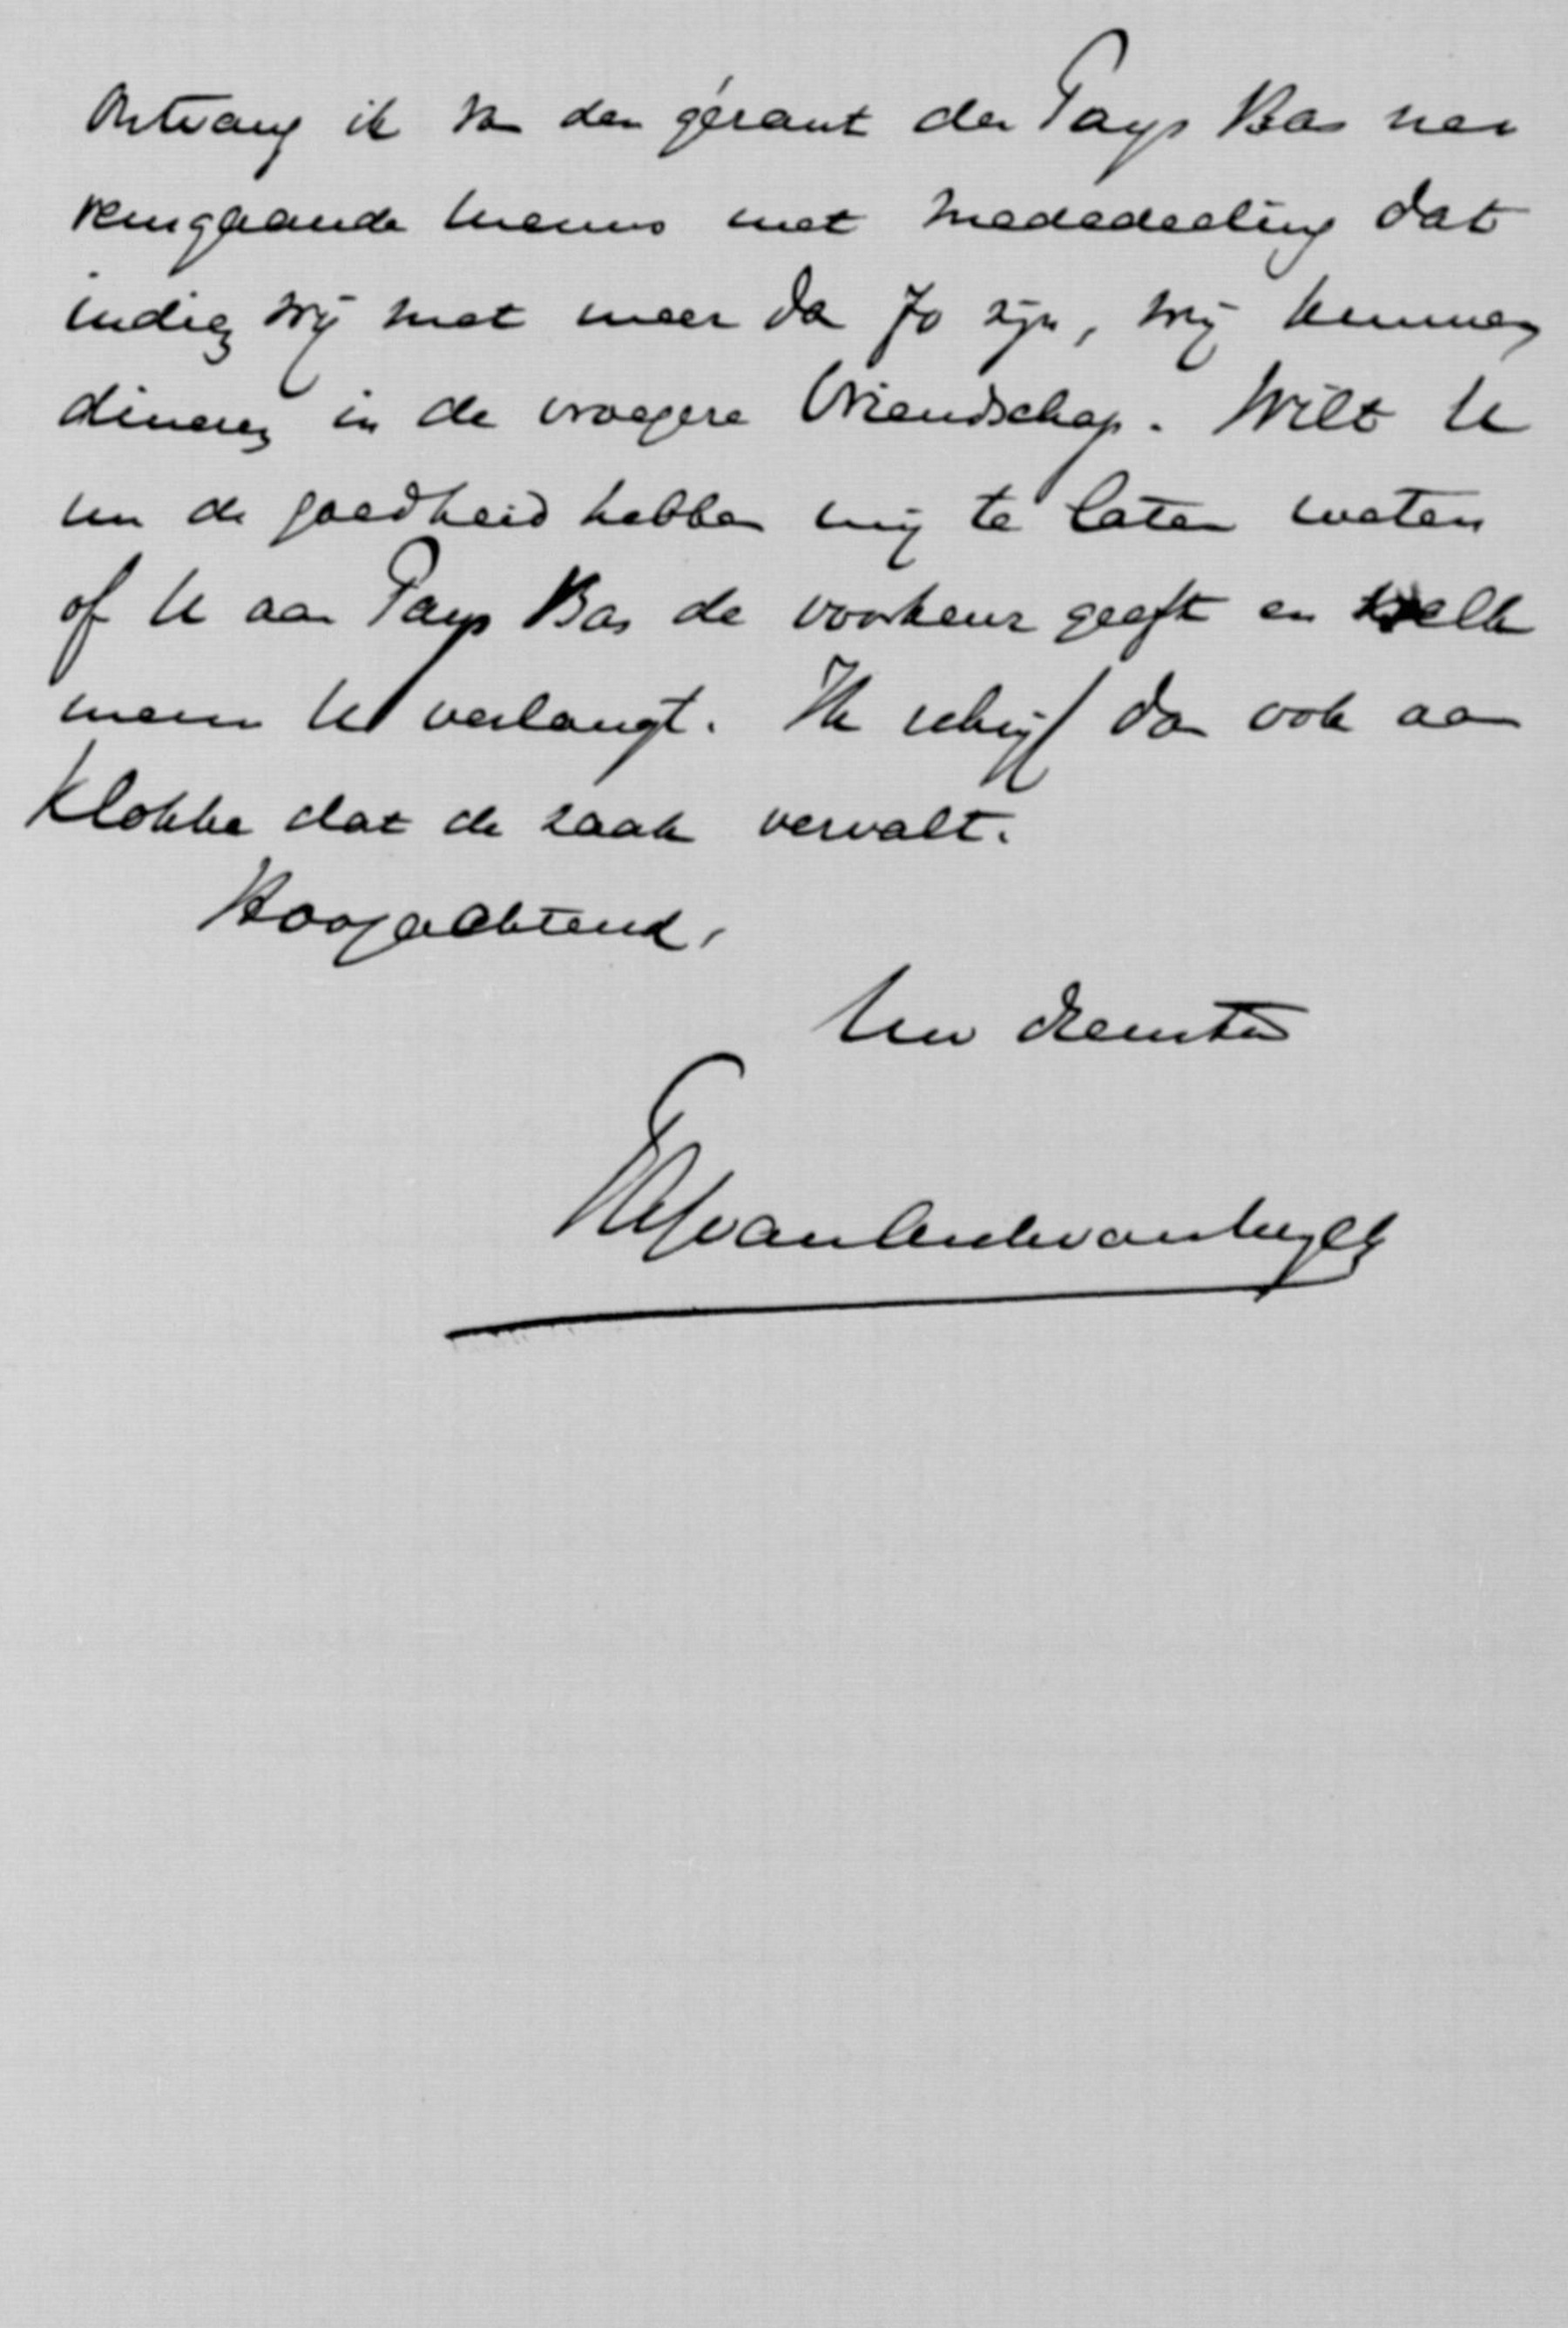 Ontvang ik van den gérant der Pays Bas nev
vengaande menus met mededeeling dat
indien wij met meer dan 70 zijn, wij kunnen
dineren in de vroegere Vriendschap. Wilt U
nu de goedheid hebben mij te laten weten
of U aan Pays Bas de voorkeur geeft en welk
menu U verlangt. Ik schrijf dan ook aan
Klokke dat de zaak vervalt.
Hoogachtend,
Uw dienstw